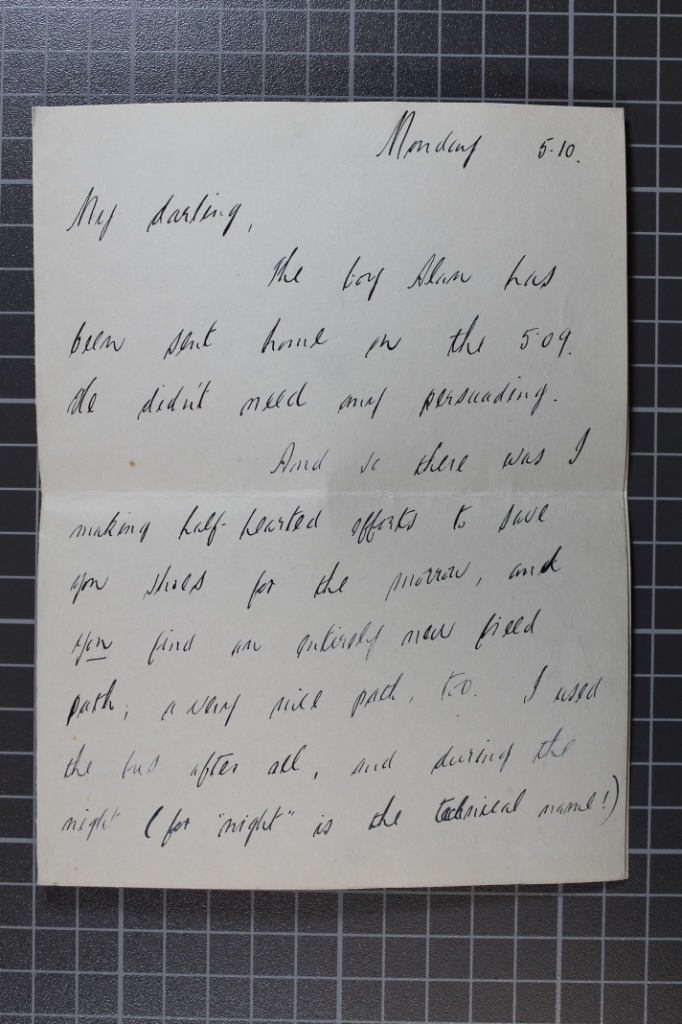 Monday 5.10.
My darling,
The boy Alan has
been sent home on the 5.09.
He didn't need any persuading.
And so there was I
making half-hearted efforts to save
you shoes for the morrow, and
you find an entirely new field
path; a very nice path, too. I used
the bus after all, and during the
night (for "night" is the technical name!)